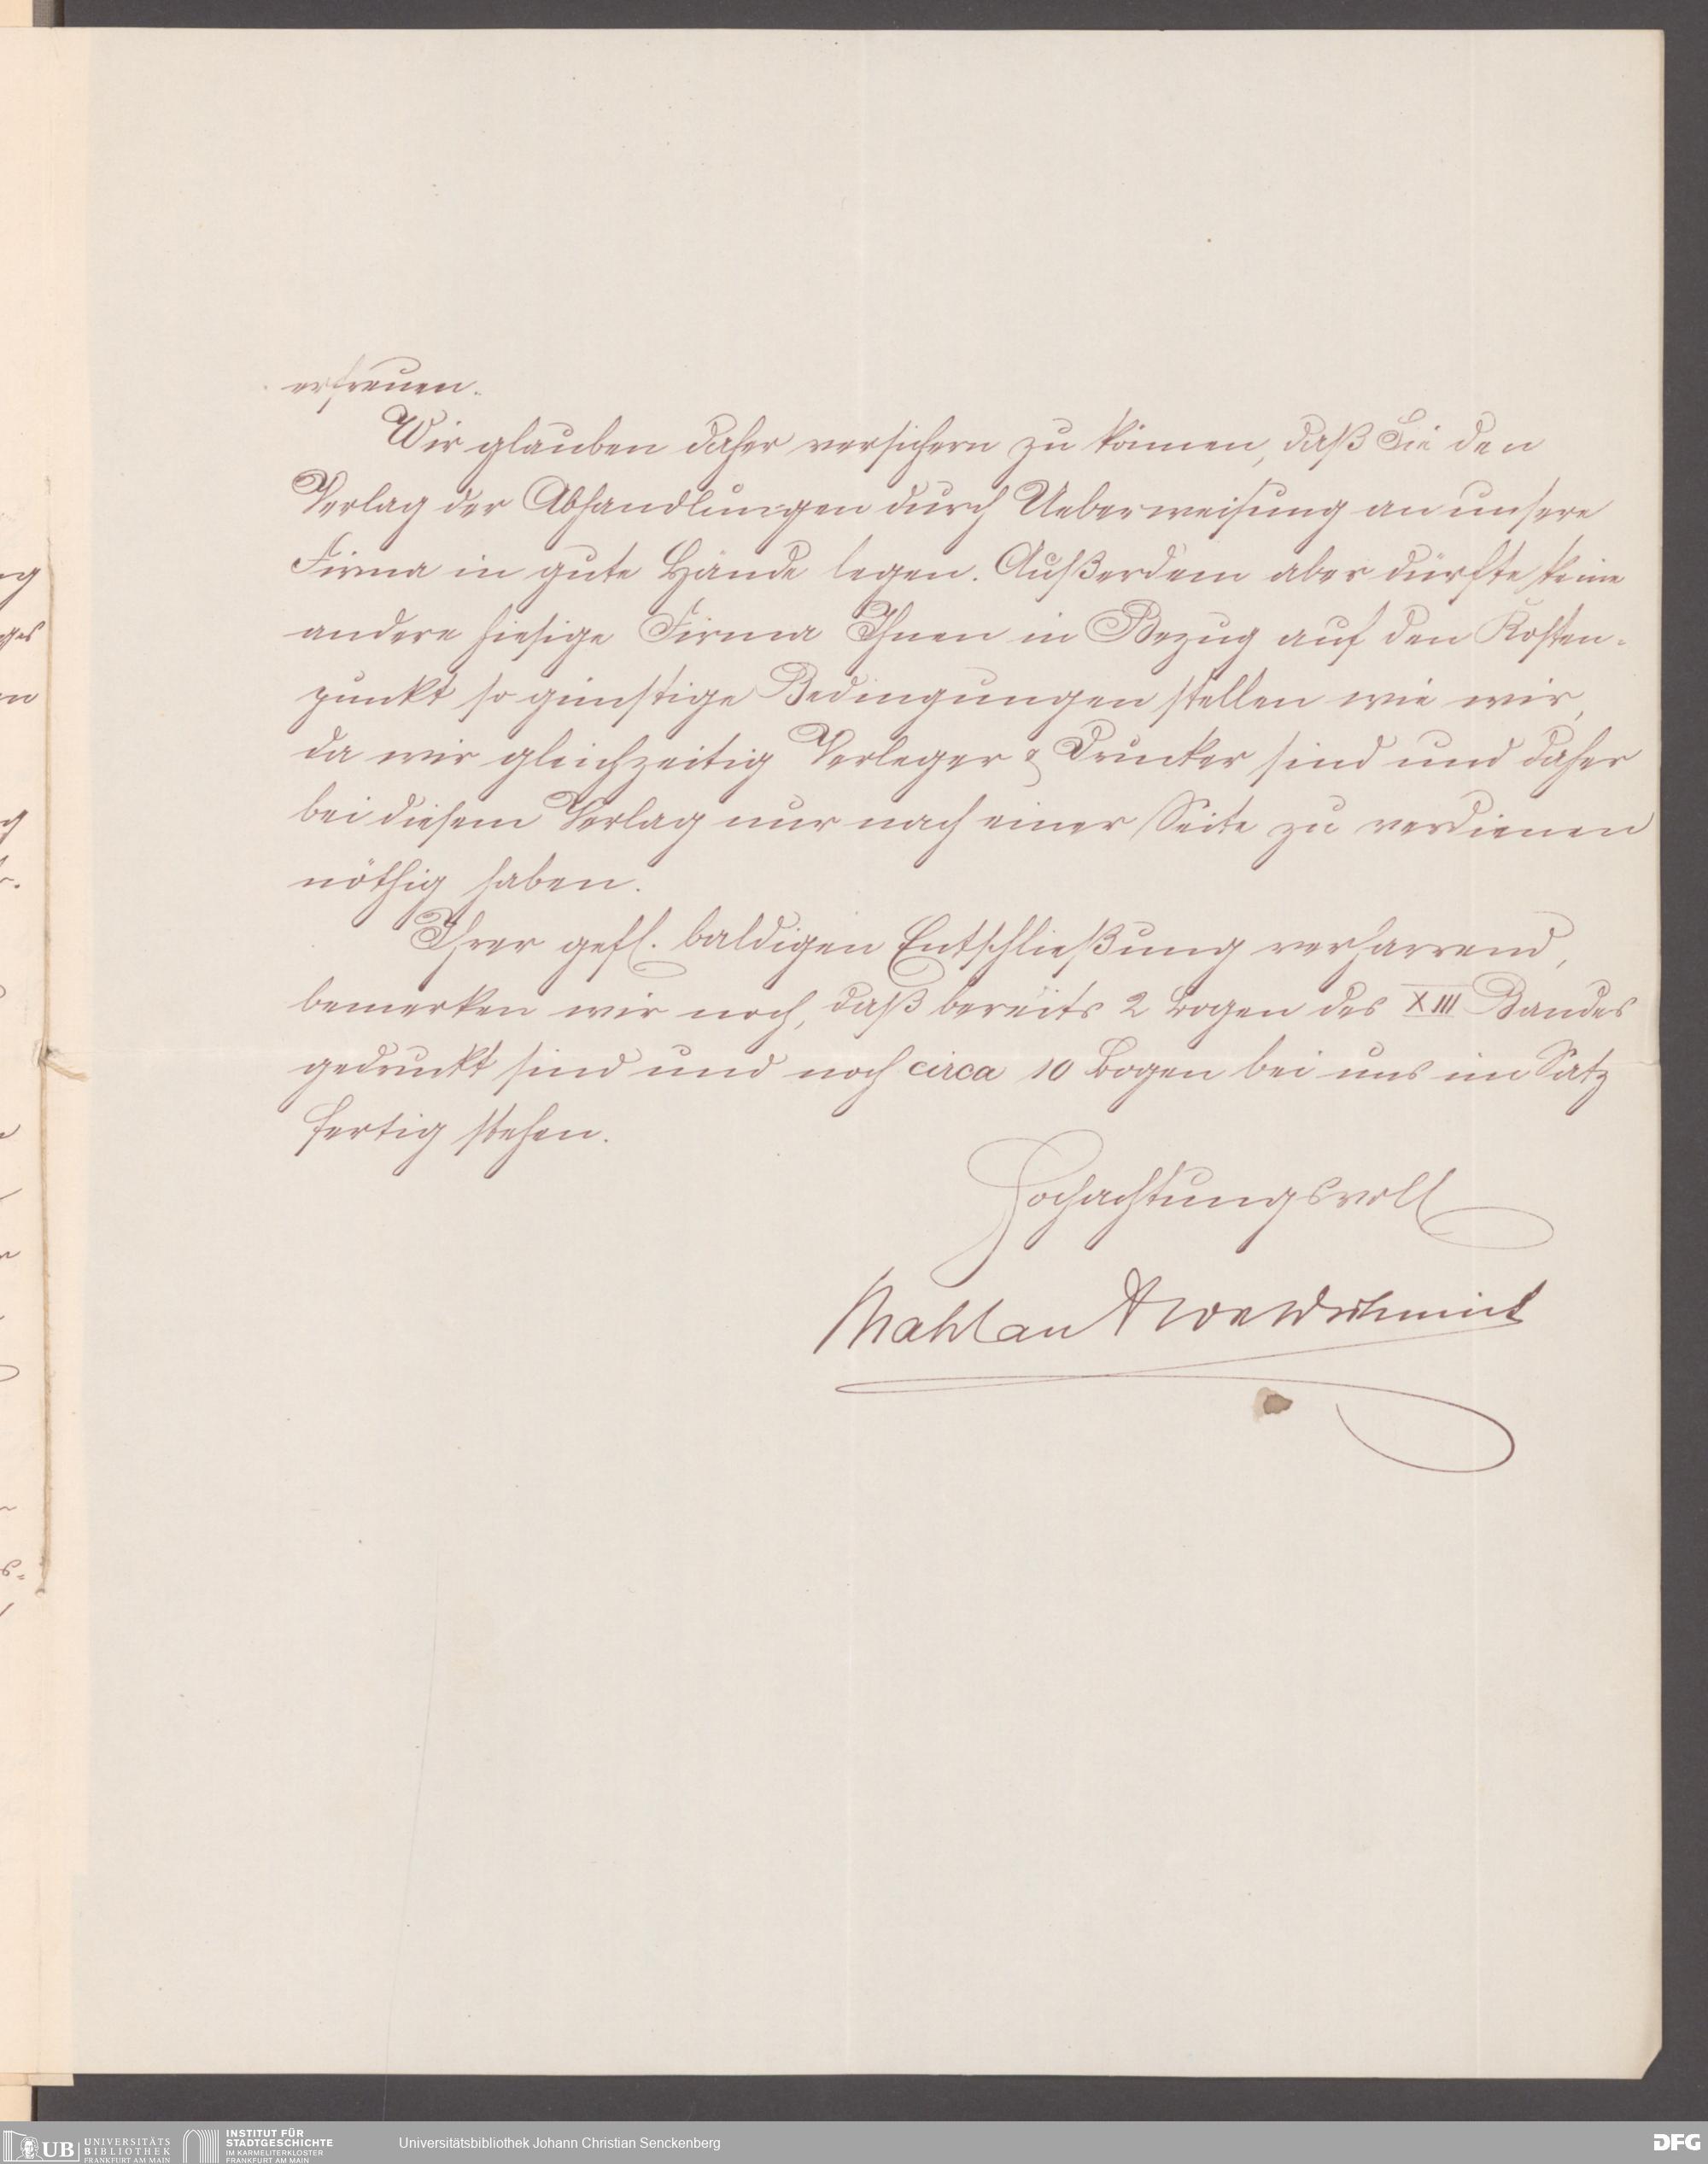 erfreuen.
Wir glauben daher versichern zu können, daß Sie den
Verlag der Abhandlungen durch Ueberweisung an unsere
Firma in gute Hände legen. Außerdem aber dürfte keine
andere hiesige Firma Ihnen in Bezug auf den Kosten-
punkt so günstige Bedingungen stellen wie wir,
da wir gleichzeitig Verleger & Drucker sind und daher
bei diesem Verlag nur nach einer Seite zu verdienen
nöthig haben.
Ihrer gefl. baldigen Entschließung verharrend,
bemerken wir noch, daß bereits 2 Bogen des XIII Bandes
gedruckt sind und noch circa 10 Bogen bei uns im Satz
fertig stehen.
Hochachtungsvoll
Mahlau & Waldschmidt
UB UNIVERSITÄTS
BIBLIOTHEK
FRANKFURT AM MAIN
INSTITUT FÜR
STADTGESCHICHTE
IM KARMELITERKLOSTER
FRANKFURT AM MAIN
Universitätsbibliothek Johann Christian Senckenberg
DFG